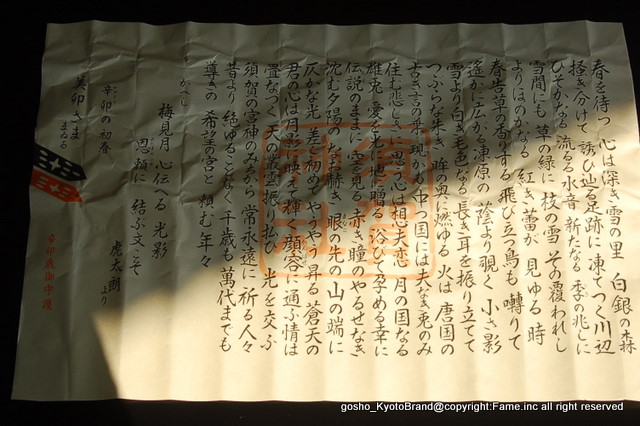 春を待つ 心は深き雪の里 白銀の森
掻き分けて 誘ひ辿る足跡に 凍てつく川辺
ひそかなる 流るる水音 新たなる 季の兆しに
雪間にも 草の緑に 枝の雪 その覆われし
よりほのみなる 紅き蕾が 見ゆる時
春告草の香りする 飛び立つ鳥も 囀りて
遥か 広がる凍原の 蔭より覗く 小さ影
雪より白き毛色なる 長き耳を振り立てて
つぶらな赤き 眸の奥に燃ゆる 火は 唐国の
古き言の来し現か 中つ国には夫なき兎のみ
住む悲しさ 思ふ心は想夫恋 月の国なる
雄兎の愛を光に地に贈る 浴びて孕める幸に
伝説のままに 空を見る 赤き瞳のやるせなき
沈む夕陽の なお赫き 眼の先の山の端に
仄かな光 差し初めて やうやう昇る 蒼天の
君の心は月影に映えて輝く 顔容に通ふ情は
畳なづく 天の叢雲振り払ひ 光を交ふ
須賀の宮神のみならず 常永遠に 祈る人々
昔より 絶ゆることなく 千歳も萬代までも
導きの 希望の宮と 頼む年々
かへし
梅見月 心伝へる 光影
思頼に 結ぶ文こそ
虎太朗 より
辛卯の初春
癸卯さま
まゐる
辛卯歳御守護
gosho_KyotoBrand@copyright:Fame.inc all right reserved